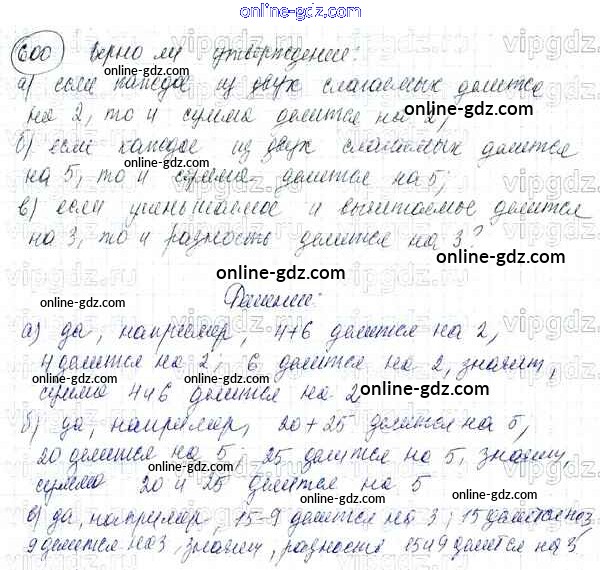 online-gdz.com
600 верно ли утверждение:
а) если каждое из двух слагаемых делится
online-gdz.com
на 2, то и сумма делится на 2;
online-gdz.com
б) если каждое из двух слагаемых делится
online-gdz.com
на 5, то и сумма делится на 5;
online-gdz.com
в) если уменьшаемое и вычитаемое делится
на 3, то и разность делится на 3?
online-gdz.com
online-gdz.com
Решение:
а) да, например, 4+6 делится на 2,
4 делится на 2, 6 делится на 2, значит,
online-gdz.com
сумма 4и6 делится на 2
online-gdz.com
б) да, например, 20+25 делится на 5,
20 делится на 5, 25 делится на 5, значит,
online-gdz.com
сумма 20 и 25 делится на 5
online-gdz.com
в) да, например, 15-9 делится на 3, 15 делится на 3,
9 делится на 3, значит, разность 15и9 делится на 3
online-gdz.com
vipgdz.ru